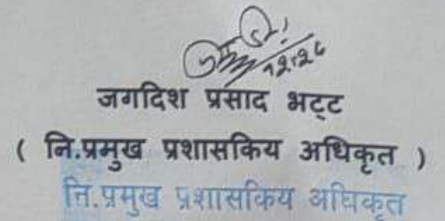 जगदिश प्रसाद भट्ट
( नि.प्रमुख प्रशासकिय अधिकृत )
नि.प्रमुख प्रशासकिय अधिकृत